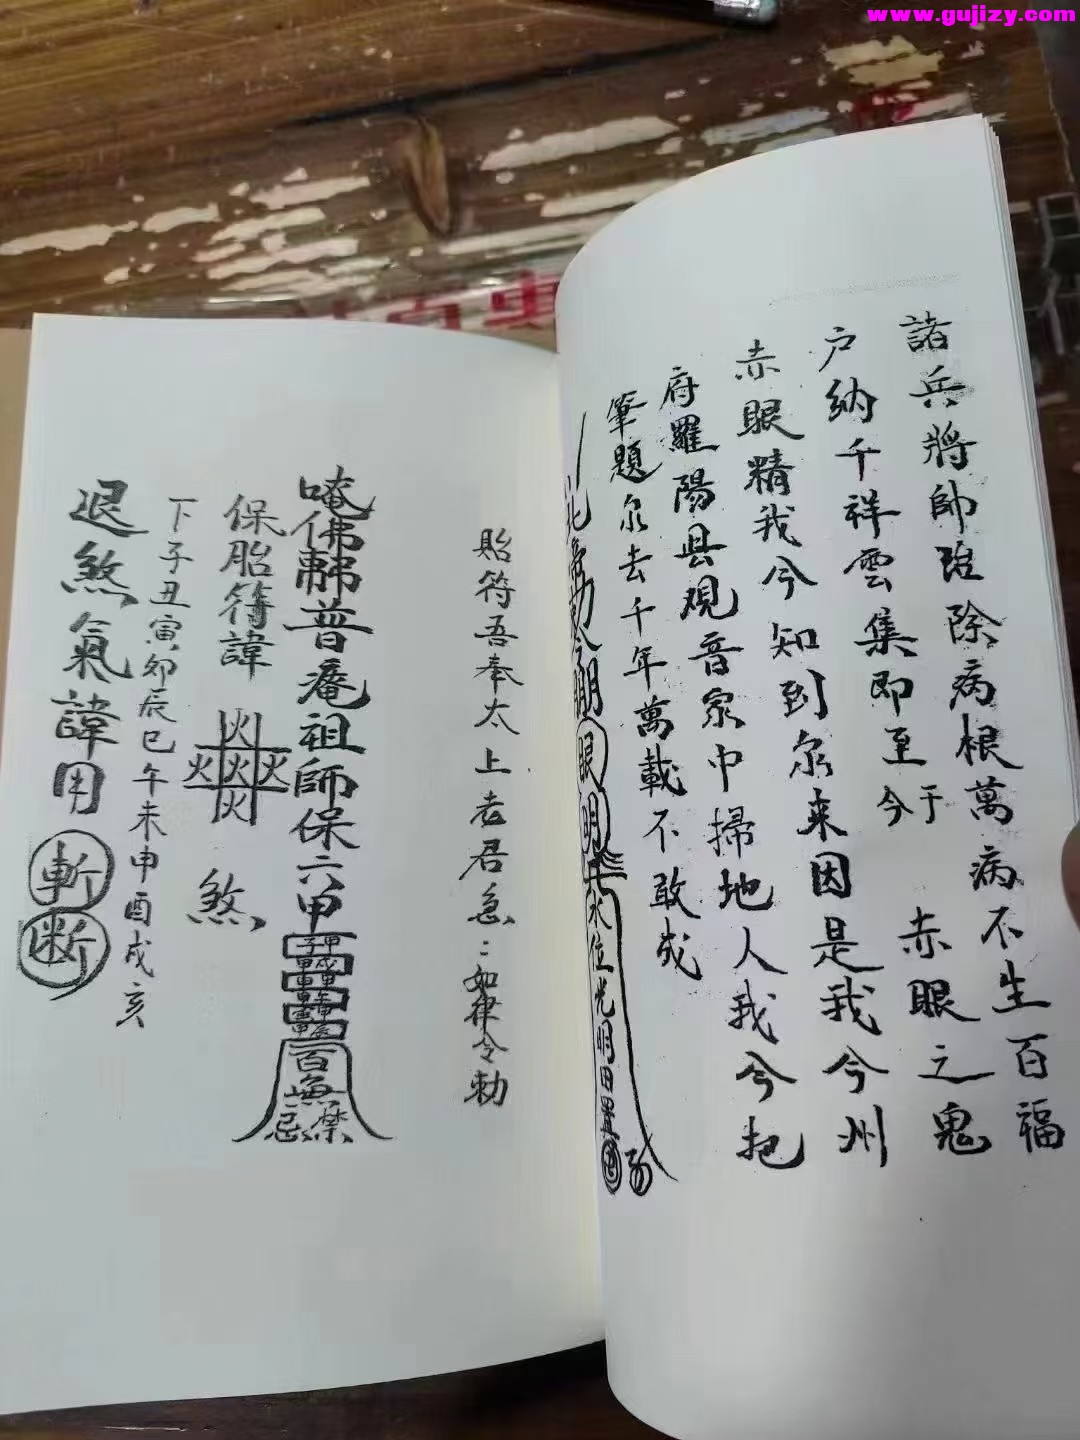 www.gujizy.com
諸兵將帥
除病根萬病不生百福
户納千祥雲集即至于今
赤眼之鬼
赤眼精我今知到尔来因是我今州
府羅陽县观音家中掃地人我今把
筆題尔去千年萬載不敢成
眼明
水位光明
貽符吾奉太上老君急:如律令勅
唵佛 普庵祖師保六甲
百無禁忌
保胎符諱
火
火火火
火
煞
下子丑寅卯辰巳午未申酉戌亥
退煞氣諱用
斬
断